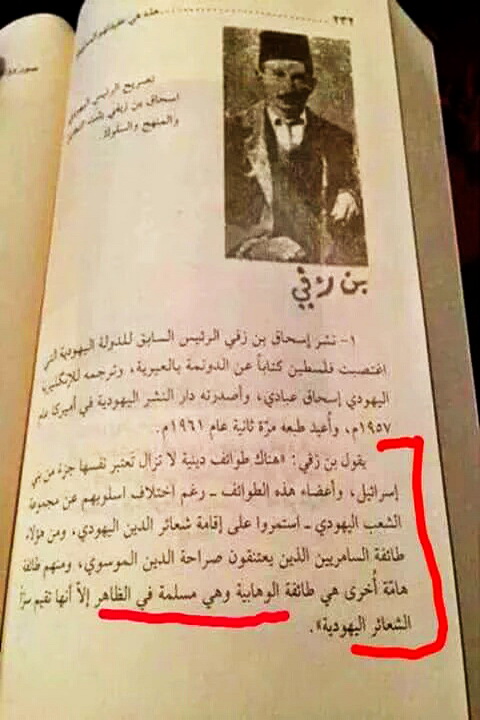 ٢٣٢
هذه هي
تصريح الرئيس اليهودي
اسحاق بن زيفي
والمنهج والسلوك.
بن زفي
١- نشر إسحاق بن زفي الرئيس السابق للدولة اليهودية التي
اغتصبت فلسطين كتاباً عن الدونمة بالعبرية، وترجمه للإنكليزية
اليهودي إسحاق عبادي، وأصدرته دار النشر اليهودية في أميركا عام
١٩٥٧م، وأُعيد طبعه مرّة ثانية عام ١٩٦١م.
يقول بن زفي: «هناك طوائف دينية لا تزال تعتبر نفسها جزءً من بني
إسرائيل، وأعضاء هذه الطوائف - رغم اختلاف اسلوبهم عن مجموعة
الشعب اليهودي - استمروا على إقامة شعائر الدين اليهودي، ومن هؤلاء
طائفة السامريين الذين يعتنقون صراحة الدين الموسوي، ومنهم طائفة
هامّة أُخرى هي طائفة الوهابية وهي مسلمة في الظاهر إلاّ أنها تقيم سرّاً
الشعائر اليهودية».